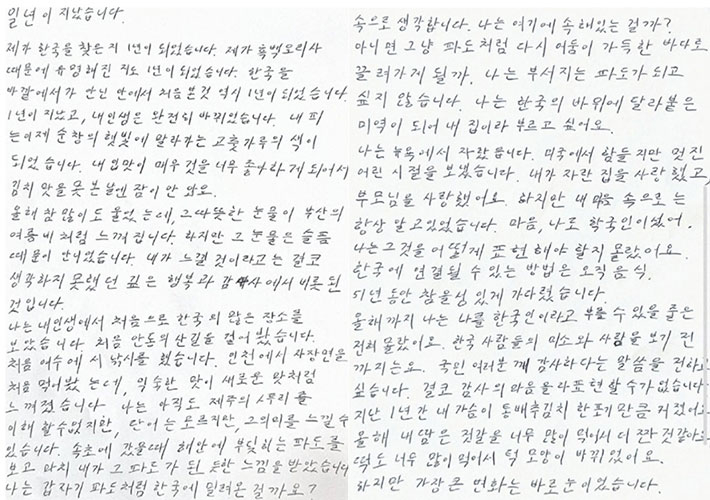 일년이 지났습니다.
제가 한국을 찾은지 1년이 되었습니다. 제가 흑백요리사
때문에 유명해진 지도 1년이 되었습니다. 한국을
바깥에서가 안닌 안에서 처음 본것 역시 1년이 되었습니다.
1년이 지났고, 내 인생은 완전히 바뀌었습니다. 내 피
는 이제 순창의 햇빛에 말라가는 고춧가루의 색이
되었습니다. 내 입맛이 매우것을 너무 좋아하게 되어서
김치 맛을 못 본 날엔 잠이 안 와요.
올해 참 많이도 울었는데, 그 따뜻한 눈물이 부산의
여름비처럼 느껴집니다. 하지만 그 눈물은 슬픔
때문이 안니었습니다. 내가 느낄 것이라고는 결코
생각하지 못했던 깊은 행복과 감사에서 비롯된
것입니다.
나는 내 인생에서 처음으로 한국의 많은 장소를
보았습니다. 처음 안동의 산길을 걸어 봤습니다.
처음 여수에서 낚시를 했습니다. 인천에서 짜장면을
처음 먹어봤는데, 익숙한 맛이 새로운 맛처럼
느껴졌습니다. 나는 아직도 제주의 사투리를
이해할 수 없지만, 단어는 모르지만, 그 의미를 느낄 수
있습니다. 속초에 갔을때 해안에 부딪히는 파도를
보고 마치 내가 그 파도가 된 듯한 느낌을 받았습니다
나는 갑자기 파도처럼 한국에 밀려온 걸까요?
속으로 생각합니다. 나는 여기에 속해있는 걸까?
아니면 그냥 파도처럼 다시 어둠이 가득한 바다로
끌려가게 될까. 나는 부서지는 파도가 되고
싶지 않습니다. 나는 한국의 바위에 달라붙은
미역이 되어 내 집이라 부르고 싶어요.
나는 뉴욕에서 자랐습니다. 미국에서 힘들지만 멋진
어린 시절을 보냈습니다. 내가 자란 집을 사랑했고
부모님을 사랑했어요. 하지만 내 마음 속으로는
항상 알고있었습니다. 마음, 나도 한국인이었어.
나는 그것을 어떻게 표현해야 할지 몰랐어요.
한국에 연결될 수 있는 방법은 오직 음식.
51년 동안 참을성 있게 기다렸습니다.
올해까지 나는 나를 한국인이라고 부를 수 있을 줄은
전혀 몰랐어요. 한국 사람들의 미소와 사랑을 보기 전
까지는요. 국민 여러분께 감사하다는 말씀을 전하고
싶습니다. 결코 감사의 마음을 다 표현할 수가 없습니다
지난 1년간 내 가슴이 통배추김치 한 포기만큼 커졌어요
올해 내 땀은 젓갈을 너무 많이 먹어서 더 짠 것 같아요
떡도 너무 많이 먹어서 턱 모양이 바뀌었어요.
하지만 가장 큰 변화는 바로 눈이었습니다.